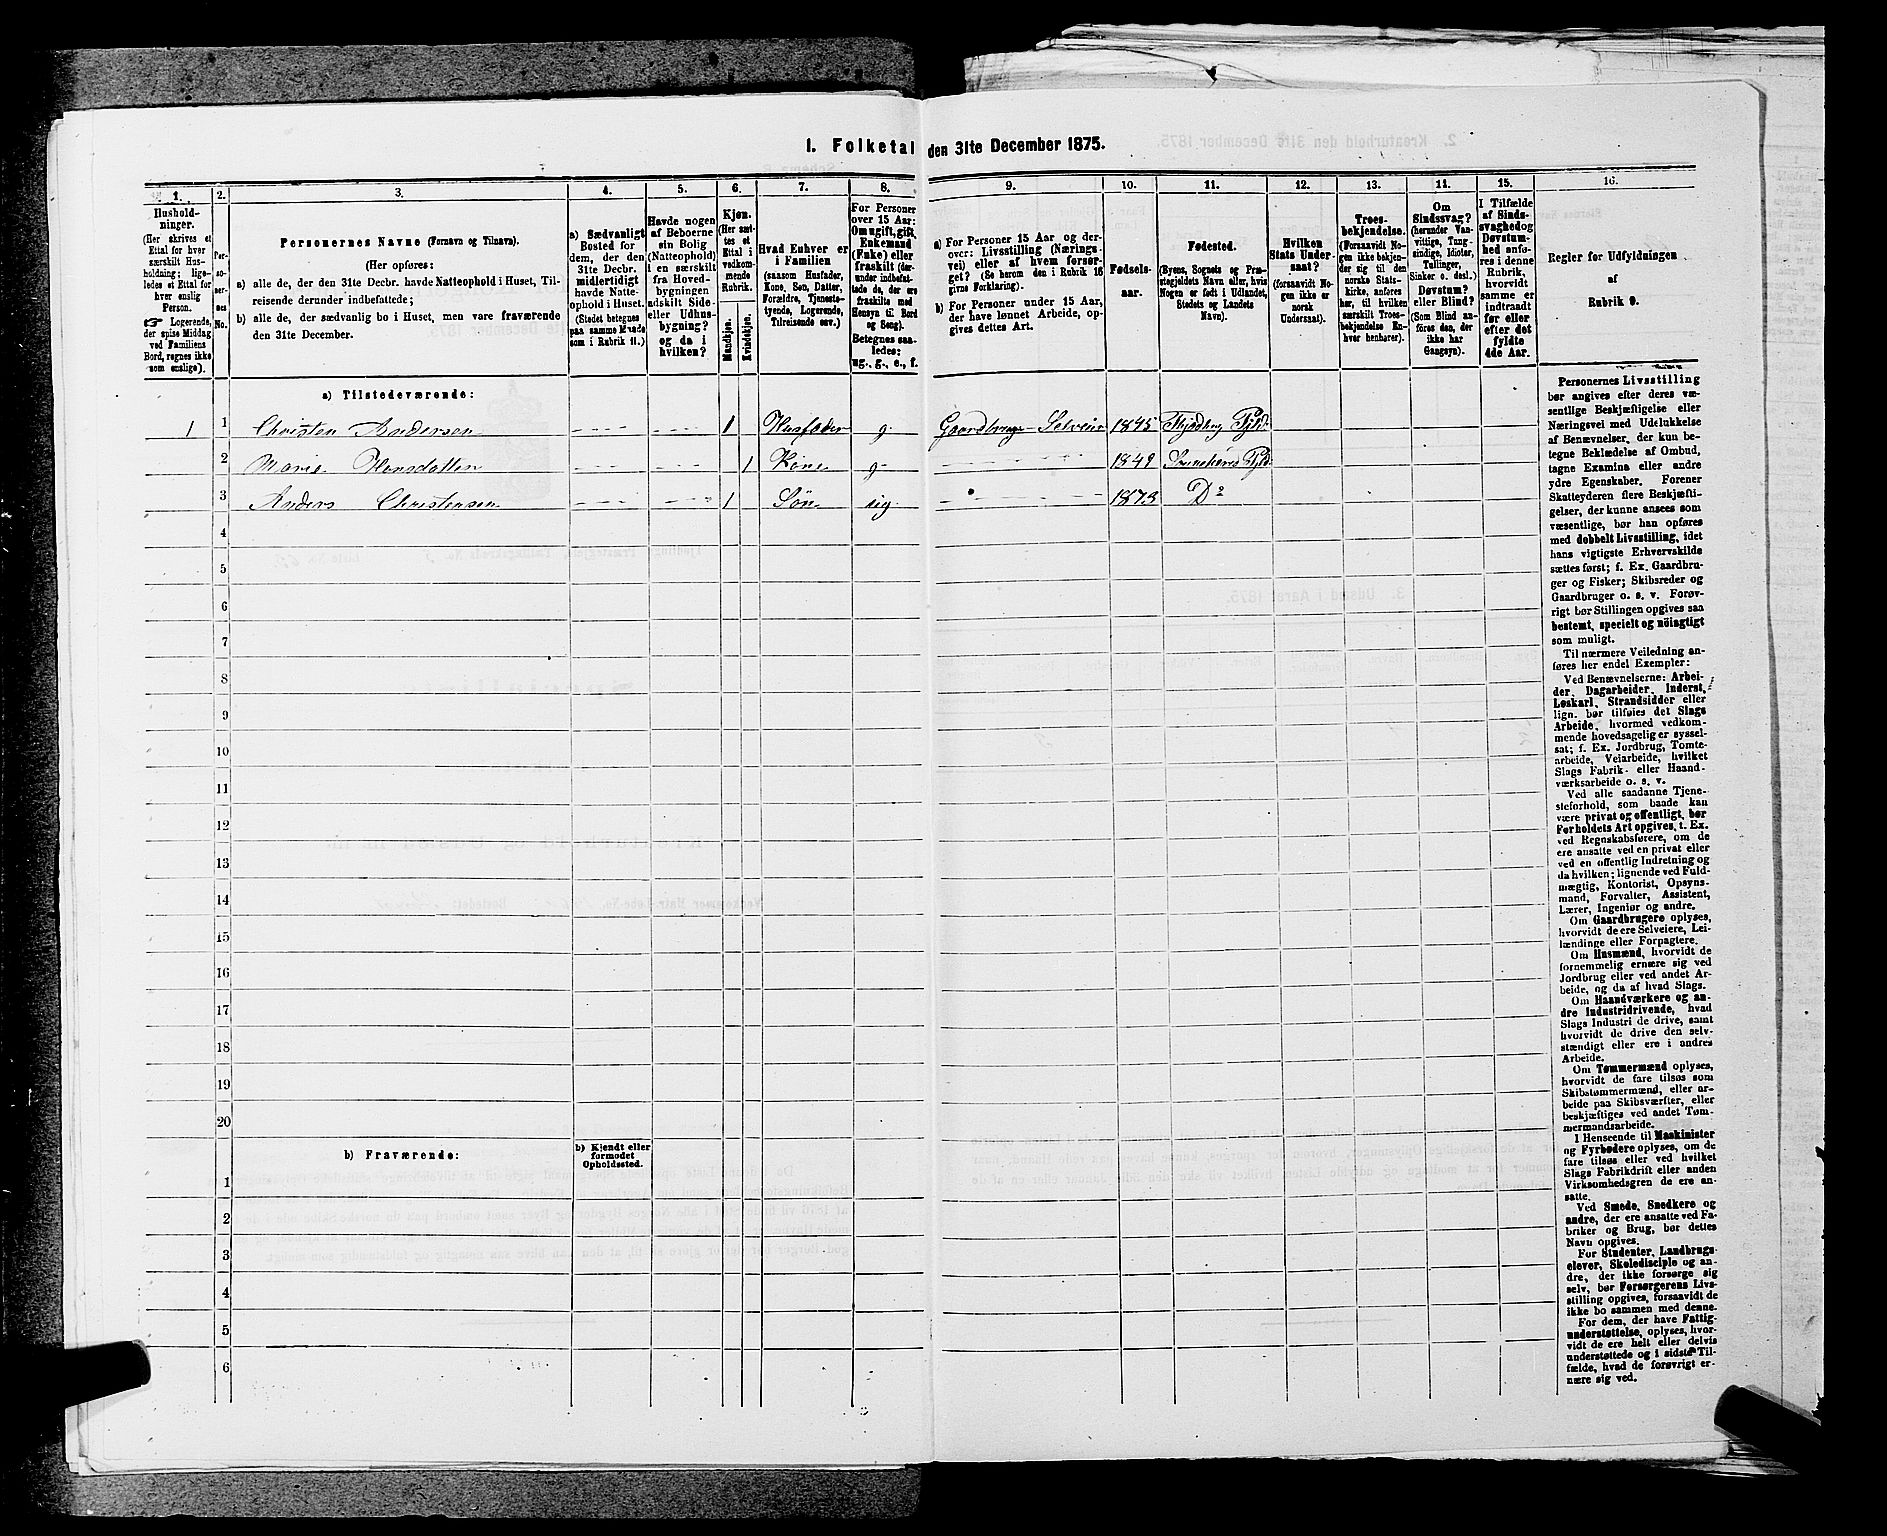 1. Folketal den 31te December 1875.
1.
Hushold-
ninger.
(Her skrives et
Ettal for hver
særskilt Hus-
holdning; lige-
ledes et Ettal for
hver enslig
Person.
Logerende,
der spise Middag
ved Familiens
Bord, regnes ikke
som enslige).
2.
Per-
so-
ner-
nes
No.
3.
Personernes Navne (Fornavn og Tilnavn).
(Her opføres:
a) alle de, der den 31te Decbr. havde Natteophold i Huset, Til-
reisende derunder indbefattede;
b) alle de, der sædvanlig bo i Huset, men vare fraværende
den 31te December.
4.
a) Sædvanligt
Bosted for
dem, der den
31te Decbr.
midlertidigt
havde Natte-
ophold i Huset.
(Stedet betegnes
paa samme Maade
som i Rubrik 11.)
5.
Havde nogen
af Beboerne
sin Bolig
(Natteophold)
i en særskilt
fra Hoved-
bygningen
adskilt Side-
eller Udhus-
bygning?
og da i
hvilken?
6.
Kjøn.
(Her sæt-
tes et
Ettal i
vedkom-
mende
Rubrik.
Mandkjøn.
Kvindekjøn.
7.
Hvad Enhver er
i Familien
(saasom Husfader,
Kone, Søn, Datter,
Forældre, Tjeneste-
tyende, Logerende,
Tilreisende osv.)
8.
For Personer
over 15 Aar:
Om ugift, gift,
Enkemand
(Enke) eller
fraskilt (der-
under indbefat-
tede de, der ere
fraskilte med
Hensyn til Bord
og Seng).
Betegnes saa-
ledes:
ug., g., e., f.
9.
a) For Personer 15 Aar og der-
over: Livsstilling (Nærings-
vei) eller af hvem forsør-
get? (Se herom den i Rubrik 16
givne Forklaring).
b) For Personer under 15 Aar,
der have lønnet Arbeide, op-
gives dettes Art.
10.
Fødsels-
aar.
11.
Fødested.
(Byens, Sognets og Præ-
stegjeldets Navn eller, hvis
Nogen er født i Udlandet,
Stedets og Landets
Navn).
12.
Hvilken
Stats Under-
saat?
(forsaavidt No-
gen ikke er
norsk
Undersaat).
13.
Troes-
bekjendelse.
(Forsaavidt No-
gen ikke bekjen-
der sig til den
norske Stats-
kirke, anføres
her, til hvilken
særskilt Troes-
bekjendelse En-
hver henhører).
14.
Om
Sindssvag?
(herunder Van-
vittige, Tung-
sindige, Idioter,
Tullinger,
Sinker o. desl.)
Døvstum?
eller Blind?
(Som Blind an-
føres den, der
ikke har
Gangsyn).
15.
I Tilfælde
af Sinds-
svaghed og
Døvstum-
hed anfø-
res i denne
Rubrik,
hvorvidt
samme er
indtraadt
før eller
efter det
fyldte
4de Aar.
16.
Regler for Udfyldningen
af
Rubrik 9.
a) Tilstedeværende:
1 1 Christen Andersen 1 Husfader g. Gaardbruger Selveier 1845 Fjeld
2 Marie Hansdatter 1 Kone g. 1849 Fjeld
3 Anders Christensen 1 Søn ug. 1873 Do
4
5
6
7
8
9
10
11
12
13
14
15
16
17
18
19
20
b) Fraværende:
b) Kjendt eller
formodet
Opholdssted.
1
2
3
4
5
6
Personernes Livsstilling
bør angives efter deres væ-
sentlige Beskjæftigelse eller
Næringsvei med Udelukkelse
af Benævnelser, der kun be-
tegne Beklædelse af Ombud,
tagne Examina eller andre
ydre Egenskaber. Forener
Skatteyderen flere Beskjæfti-
gelser, der kunne ansees som
væsentlige, bør han opføres
med dobbelt Livsstilling, idet
hans vigtigste Erhvervskilde
sættes først; f. Ex. Gaardbru-
ger og Fisker; Skibsreder og
Gaardbruger o. s. v. Forøv-
rigt bør Stillingen opgives saa
bestemt, specielt og nøiagtigt
som muligt.
Til nærmere Veiledning an-
føres her endel Exempler:
Ved Benævnelserne: Arbei-
der, Dagarbeider, Inderst,
Løskarl, Strandsidder eller
lign. bør tilføies det Slags
Arbeide, hvormed vedkom-
mende hovedsagelig er syssel-
sat; f. Ex. Jordbrug, Tomte-
arbeide, Veiarbeide, hvilket
Slags Fabrik- eller Haand-
værksarbeide o. s. v.
Ved alle saadanne Tjene-
steforhold, som baade kan
være privat og offentligt, bør
Forholdets Art opgives, t. Ex.
ved Regnskabsførere, om de
ere ansatte ved en privat eller
ved en offentlig Indretning og
da hvilken; lignende ved Fuld-
mægtig, Kontorist, Opsyns-
mand, Forvalter, Assistent,
Lærer, Ingeniør og andre.
Om Gaardbrugere oplyses,
hvorvidt de ere Selveiere, Lei-
lændinge eller Forpagtere.
Om Husmænd, hvorvidt de
fornemmelig ernære sig ved
Jordbrug eller ved andet Ar-
beide, og da af hvad Slags.
Om Haandværkere og an-
dre Industridrivende, hvad
Slags Industri de drive, samt
hvorvidt de drive den selv-
stændigt eller ere i andres
Arbeide.
Om Tømmermænd oplyses,
hvorvidt de fare tilsøs som
Skibstømmermænd, eller ar-
beide paa Skibsværfter, eller
beskjæftiges ved andet Tøm-
mermandsarbeide.
I Henseende til Maskinister
og Fyrbødere oplyses, om de
fare tilsøs eller ved hvilket
Slags Fabrikdrift eller anden
Virksomhedsgren de ere an-
satte.
Ved Smede, Snedkere og
andre, der ere ansatte ved Fa-
briker og Brug, bør dettes
Navn opgives.
For Studenter, Landbrugs-
elever, Skoledisciple og an-
dre, der ikke forsørge sig
selv, bør Forsørgerens Livs-
stilling opgives, forsaavidt de
ikke bo sammen med denne.
For dem, der have Fattig-
understøttelse, oplyses, hvor-
vidt de ere helt eller delvis
understøttede og i sidste Til-
fælde, hvad de forøvrigt er-
nære sig ved.